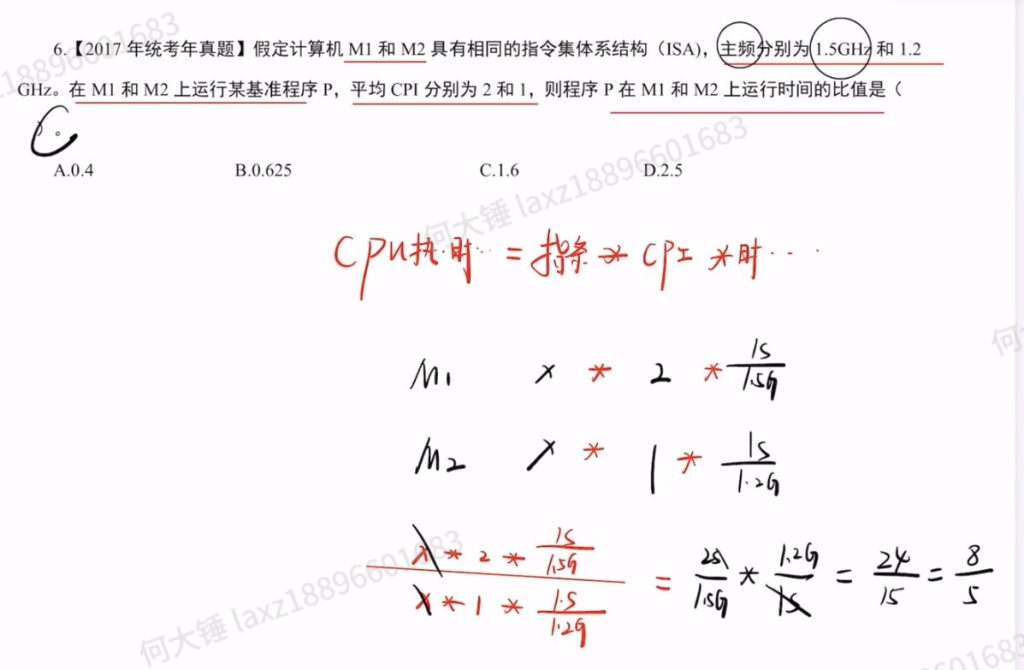 6.【2017 年统考年真题】假定计算机 M1 和 M2 具有相同的指令集体系结构（ISA），主频分别为 1.5GHz 和 1.2
GHz。在 M1 和 M2 上运行某基准程序 P，平均 CPI 分别为 2 和 1，则程序 P 在 M1 和 M2 上运行时间的比值是（
）。
C
A.0.4 B.0.625 C.1.6 D.2.5
CPU执·时·· = 指条 * CPI * 时···
M1 x * 2 * 1s/1.5G
M2 x * 1 * 1s/1.2G
x * 2 * 1s/1.5G
x * 1 * 1.s/1.2G
= 2s/1.5G * 1.2G/1s = 24/15 = 8/5
何大锤 laxz18896601683
何大锤 laxz18896601683
18896601683